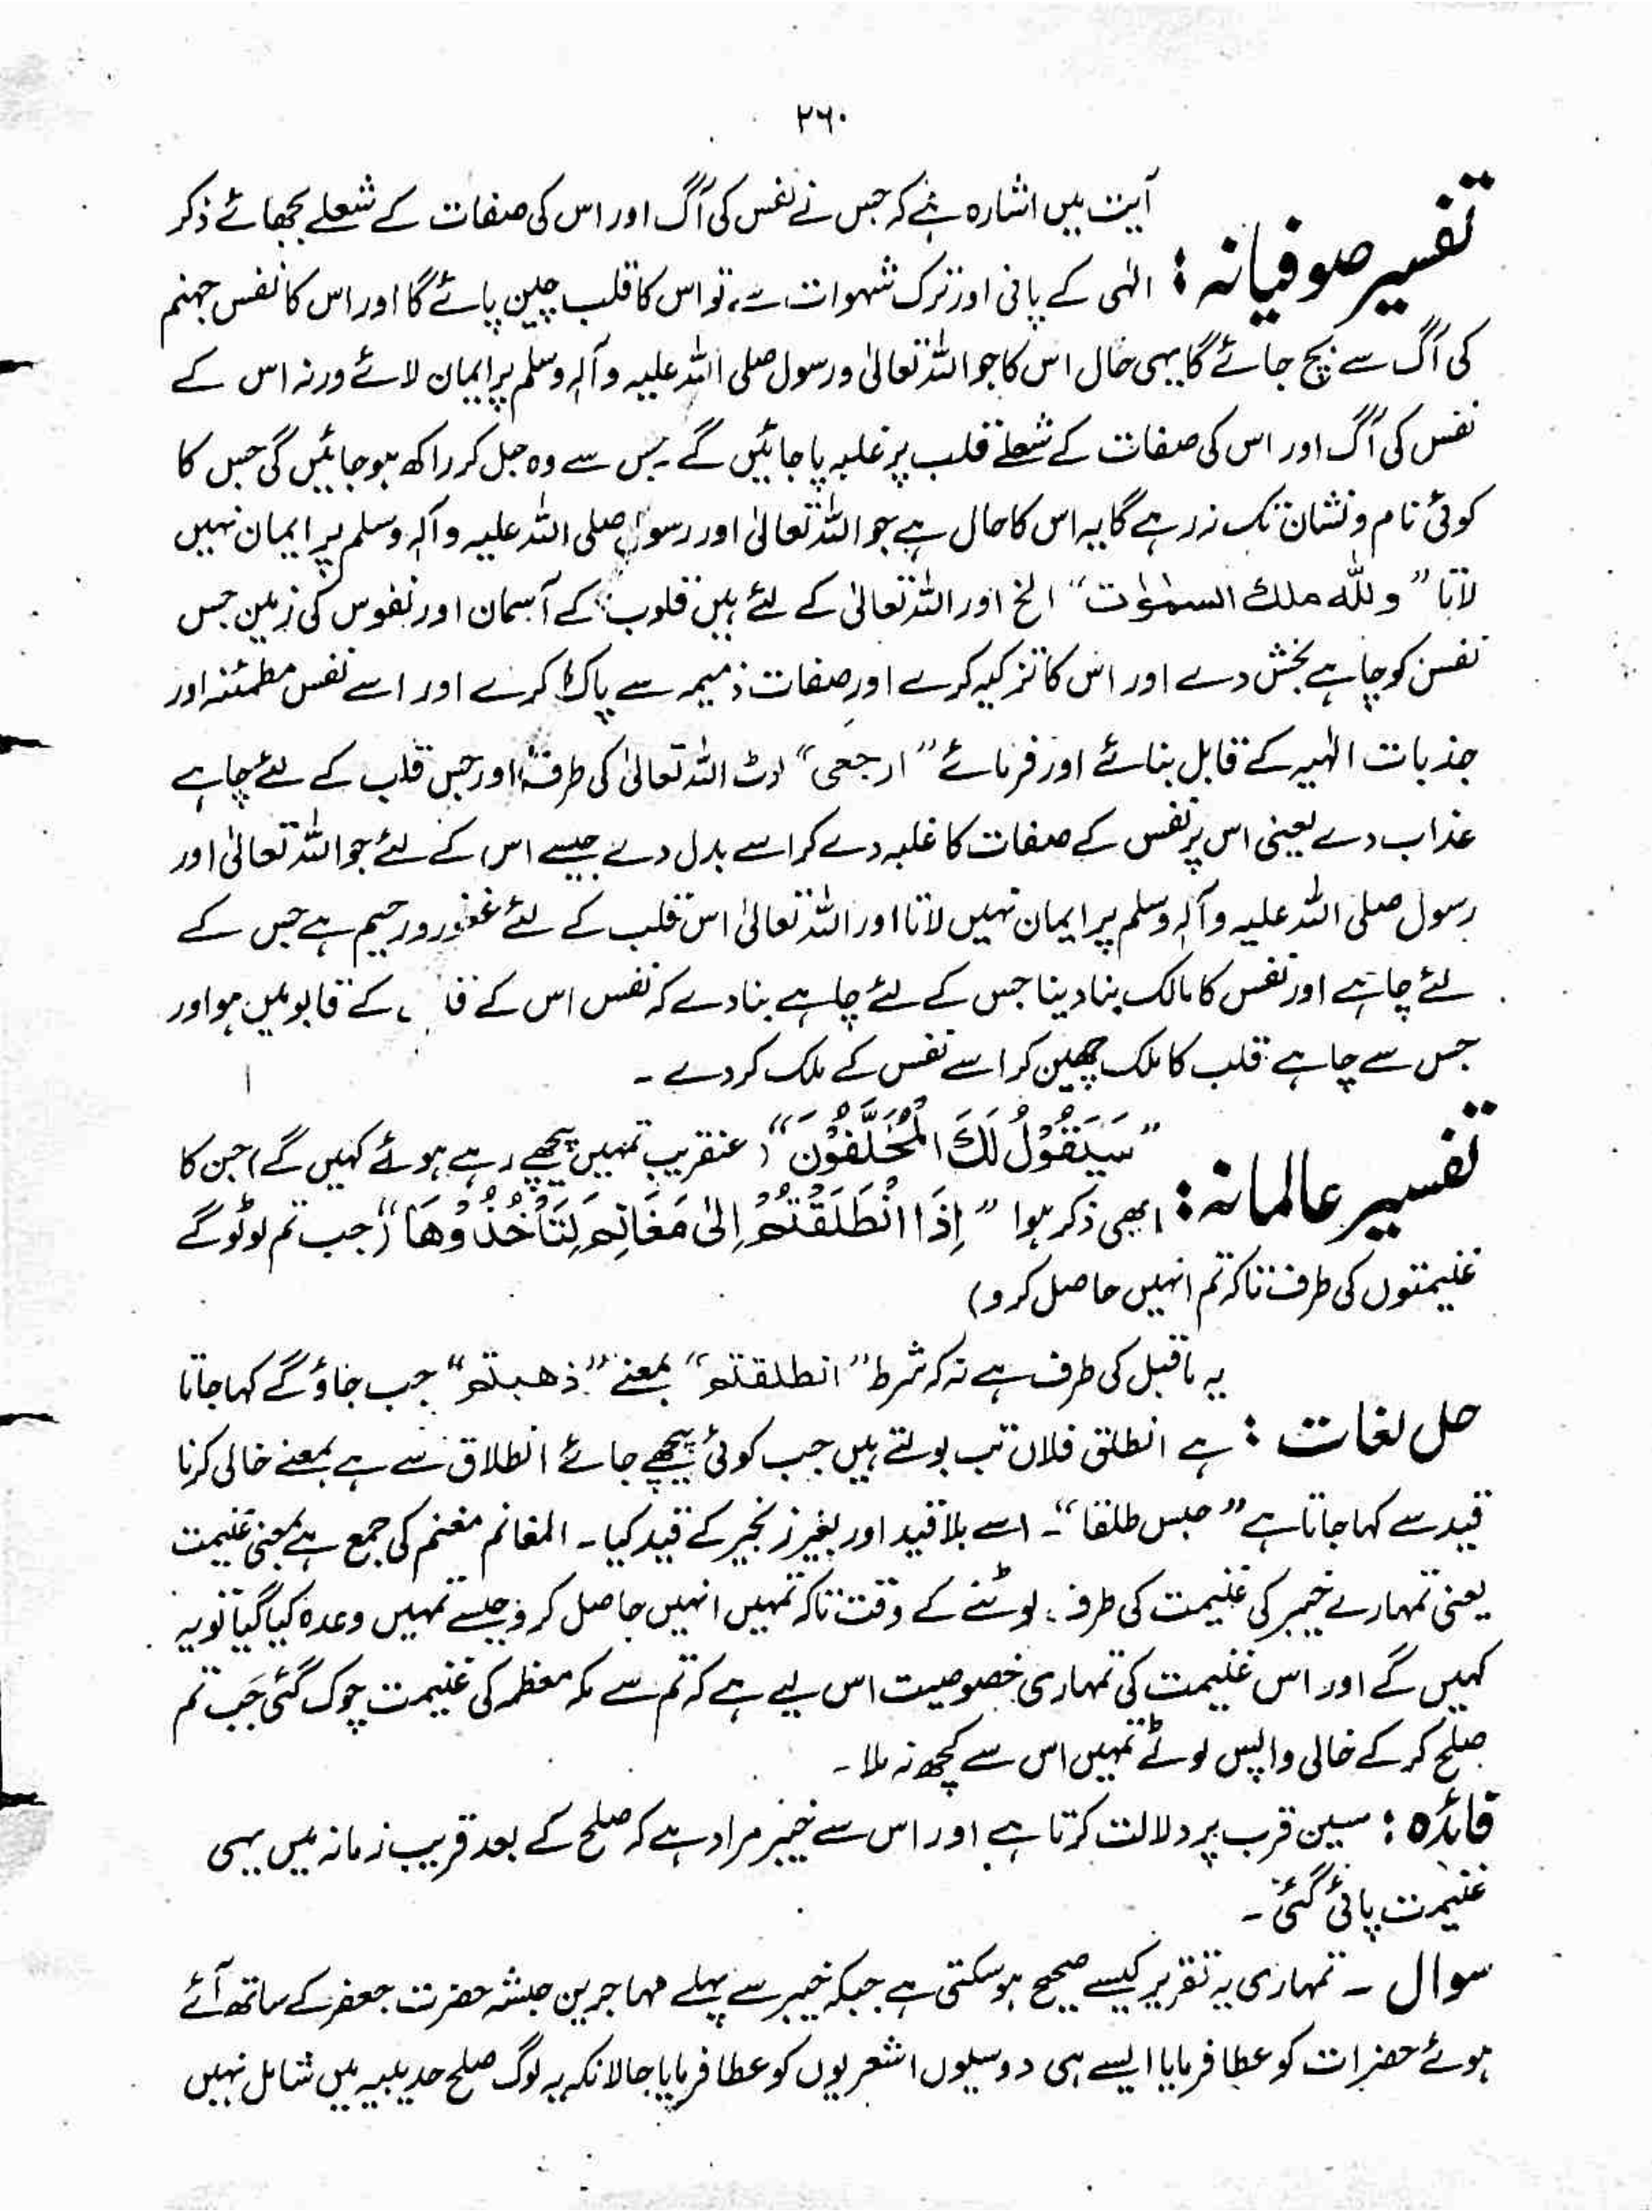 ۲۶۰
تفسیر صوفیانہ : آیت میں اشارہ ہے کہ جس نے نفس کی آگ اور اس کی صفات کے شعلے بجھائے ذکر
الٰہی کے پانی اور ترک شہوات سے، تو اس کا قلب چین پائے گا اور اس کا نفس جہنم
کی آگ سے بچ جائے گا یہی حال اس کا جو اللہ تعالیٰ و رسول صلی اللہ علیہ وآلہٖ وسلم پر ایمان لائے ورنہ اس کے
نفس کی آگ اور اس کی صفات کے شعلے قلب پر غلبہ پا جائیں گے۔ جس سے وہ جل کر راکھ ہو جائیں گی جس کا
کوئی نام و نشان تک نہ رہے گا یہ اس کا حال ہے جو اللہ تعالیٰ اور رسول صلی اللہ علیہ وآلہٖ وسلم پر ایمان نہیں
لاتا ”وللّٰہ ملک السمٰوٰت“ الخ اور اللہ تعالیٰ کے لئے ہیں قلوب کے آسمان اور نفوس کی زمین جس
نفس کو چاہے بخش دے اور اس کا تزکیہ کرے اور صفات ذمیمہ سے پاک کرے اور اسے نفس مطمئنہ اور
جذبات الٰہیہ کے قابل بنائے اور فرمائے ”ارجعی“ لوٹ اللہ تعالیٰ کی طرف اور جس قلب کے لئے چاہے
عذاب دے یعنی اس پر نفس کے صفات کا غلبہ دے کر اسے بدل دے جیسے اس کے لئے جو اللہ تعالیٰ اور
رسول صلی اللہ علیہ وآلہٖ وسلم پر ایمان نہیں لاتا اور اللہ تعالیٰ اس قلب کے لئے غفور و رحیم ہے جس کے
لئے چاہے اور نفس کا مالک بنا دینا جس کے لئے چاہے بنا دے کہ نفس اس کے کے قابو میں ہو اور
جس سے چاہے قلب کا ملک چھین کر اسے نفس کے ملک کر دے ۔
تفسیر عالمانہ : ”سَيَقُوْلُ لَكَ الْمُخَلَّفُوْنَ“ (عنقریب تمہیں پیچھے رہے ہوئے کہیں گے) جن کا
ابھی ذکر ہوا ”اِذَا انْطَلَقْتُمْ اِلٰى مَغَانِمَ لِتَاْخُذُوْهَا“ (جب تم لوٹو گے
غنیمتوں کی طرف تاکہ تم انہیں حاصل کرو)
حل لغات : یہ ماقبل کی طرف ہے نہ کہ شرط ”انطلقتم“ بمعنے ”ذھبتم“ جب جاؤ گے کہا جاتا
ہے انطلق فلان تب بولتے ہیں جب کوئی پیچھے جائے انطلاق سے ہے بمعنے خالی کرنا
قید سے کہا جاتا ہے ”حبس طلقا“۔ اسے بلا قید اور بغیر زنجیر کے قید کیا۔ المغانم مغنم کی جمع ہے بمعنی غنیمت
یعنی تمہارے خیبر کی غنیمت کی طرف لوٹنے کے وقت تاکہ تمہیں انہیں حاصل کرو جیسے تمہیں وعدہ کیا گیا تو یہ
کہیں گے اور اس غنیمت کی تمہاری خصوصیت اس لیے ہے کہ تم سے مکہ معظمہ کی غنیمت چوک گئی جب تم
صلح کر کے خالی واپس لوٹے تمہیں اس سے کچھ نہ ملا ۔
فائدہ : سین قرب پر دلالت کرتا ہے اور اس سے خیبر مراد ہے کہ صلح کے بعد قریب زمانہ میں یہی
غنیمت پائی گئی ۔
سوال ۔ تمہاری یہ تقریر کیسے صحیح ہو سکتی ہے جبکہ خیبر سے پہلے مہاجرین حبشہ حضرت جعفر کے ساتھ آئے
ہوئے حضرات کو عطا فرمایا ایسے ہی دوسیوں اشعریوں کو عطا فرمایا حالانکہ یہ لوگ صلح حدیبیہ میں شامل نہیں